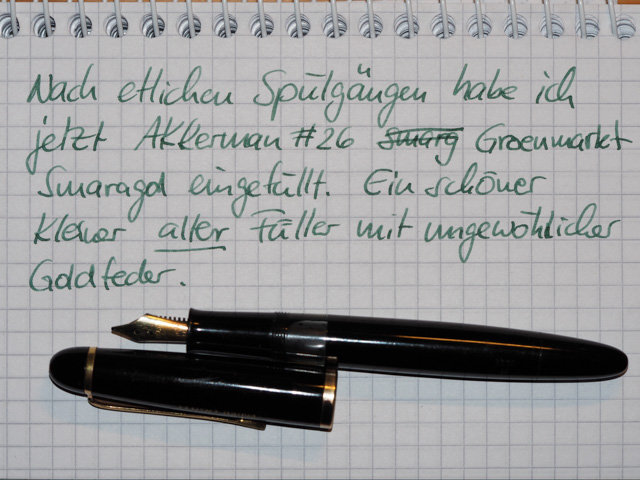 Nach etlichen Spülgängen habe ich
jetzt Akkerman #26 smarg Groenmarkt
Smaragd eingefüllt. Ein schöner
kleiner alter Füller mit ungewöhlicher
Goldfeder.